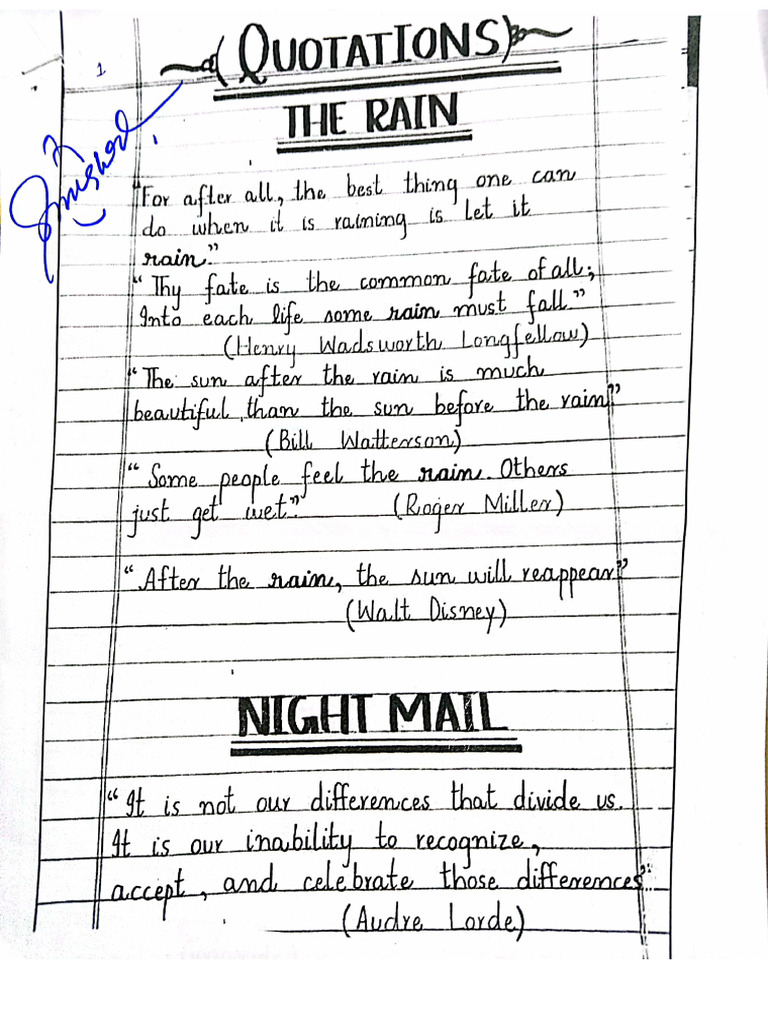 (QUOTATIONS)
1
THE RAIN
"For after all, the best thing one can
do when it is raining is let it
rain."
"Thy fate is the common fate of all;
Into each life some rain must fall"
(Henry Wadsworth Longfellow)
"The sun after the rain is much
beautiful than the sun before the rain"
(Bill Watterson)
"Some people feel the rain. Others
just get wet." (Roger Miller)
"After the rain, the sun will reappear"
(Walt Disney)
NIGHT MAIL
"It is not our differences that divide us.
It is our inability to recognize,
accept, and celebrate those differences"
(Audre Lorde)